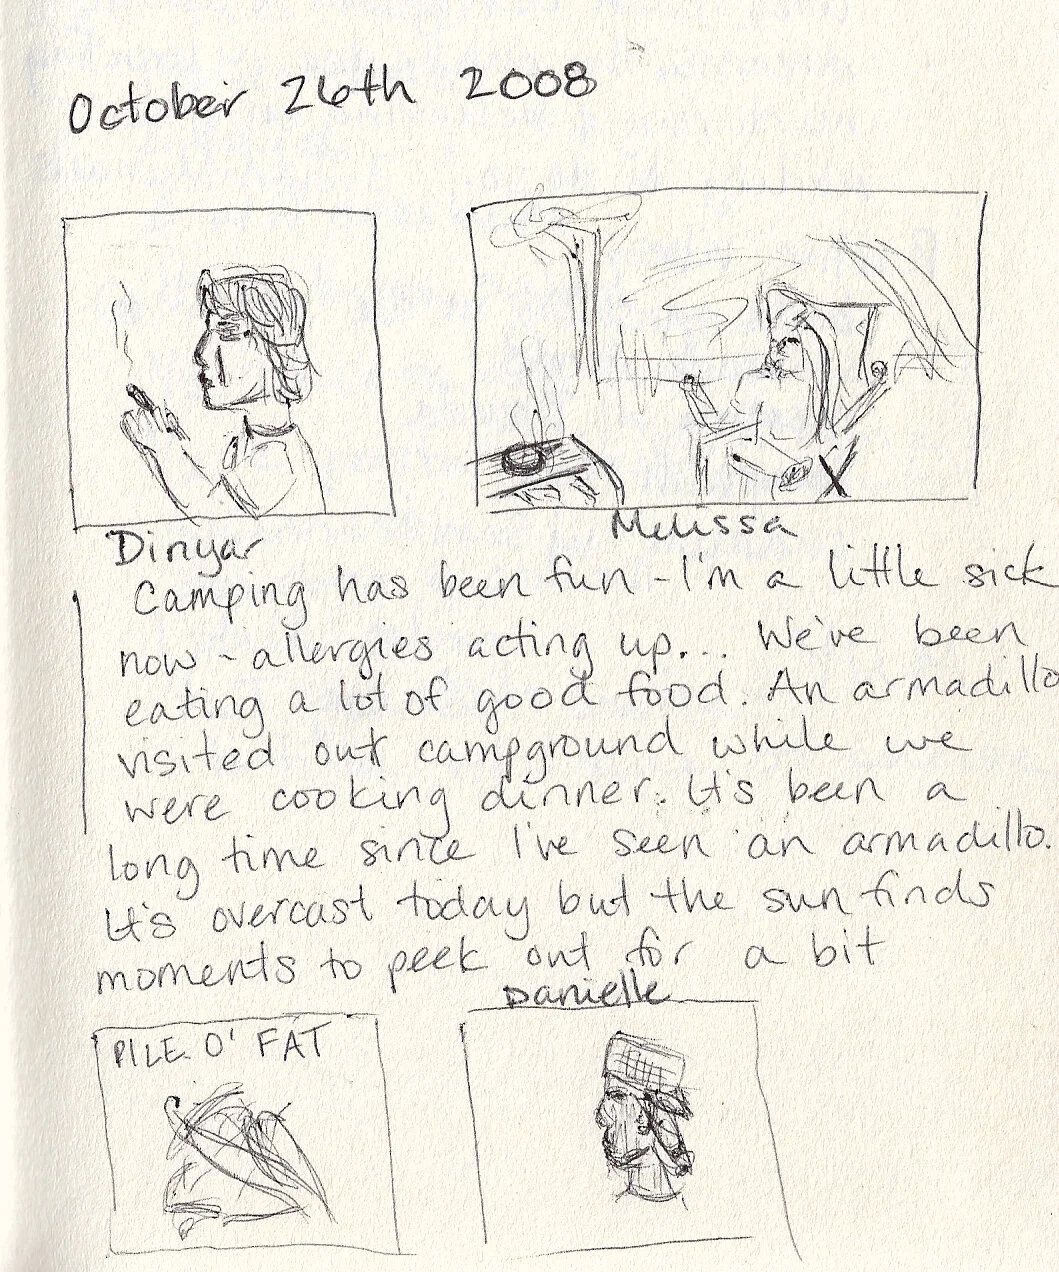 October 26th 2008
Dinyar
Melissa
Camping has been fun - I'm a little sick
now - allergies acting up... We've been
eating a lot of good food. An armadillo
visited our campground while we
were cooking dinner. It's been a
long time since I've seen an armadillo.
It's overcast today but the sun finds
moments to peek out for a bit
Danielle
PILE O' FAT